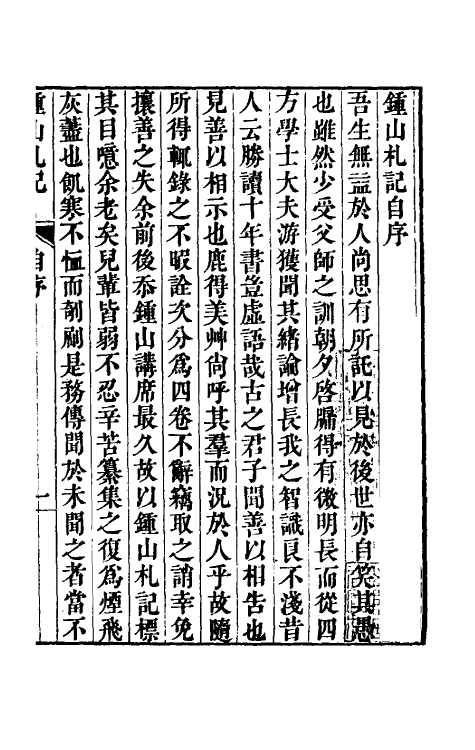 鍾山札記自序
吾生無益於人尚思有所託以見於後世亦自笑其愚
也雖然少受父師之訓朝夕啓牖得有微明長而從四
方學士大夫游獲聞其緒論增長我之智識良不淺昔
人云勝讀十年書豈虛語哉古之君子聞善以相告也
見善以相示也鹿得美艸尙呼其羣而況於人乎故隨
所得輒錄之不暇詮次分爲四卷不辭竊取之誚幸免
攘善之失余前後忝鍾山講席最久故以鍾山札記標
其目噫余老矣兒輩皆弱不忍辛苦纂集之復爲煙飛
灰蓋也飢寒不恤而剞劂是務傳聞於未聞之者當不
鍾山札記
自序
一